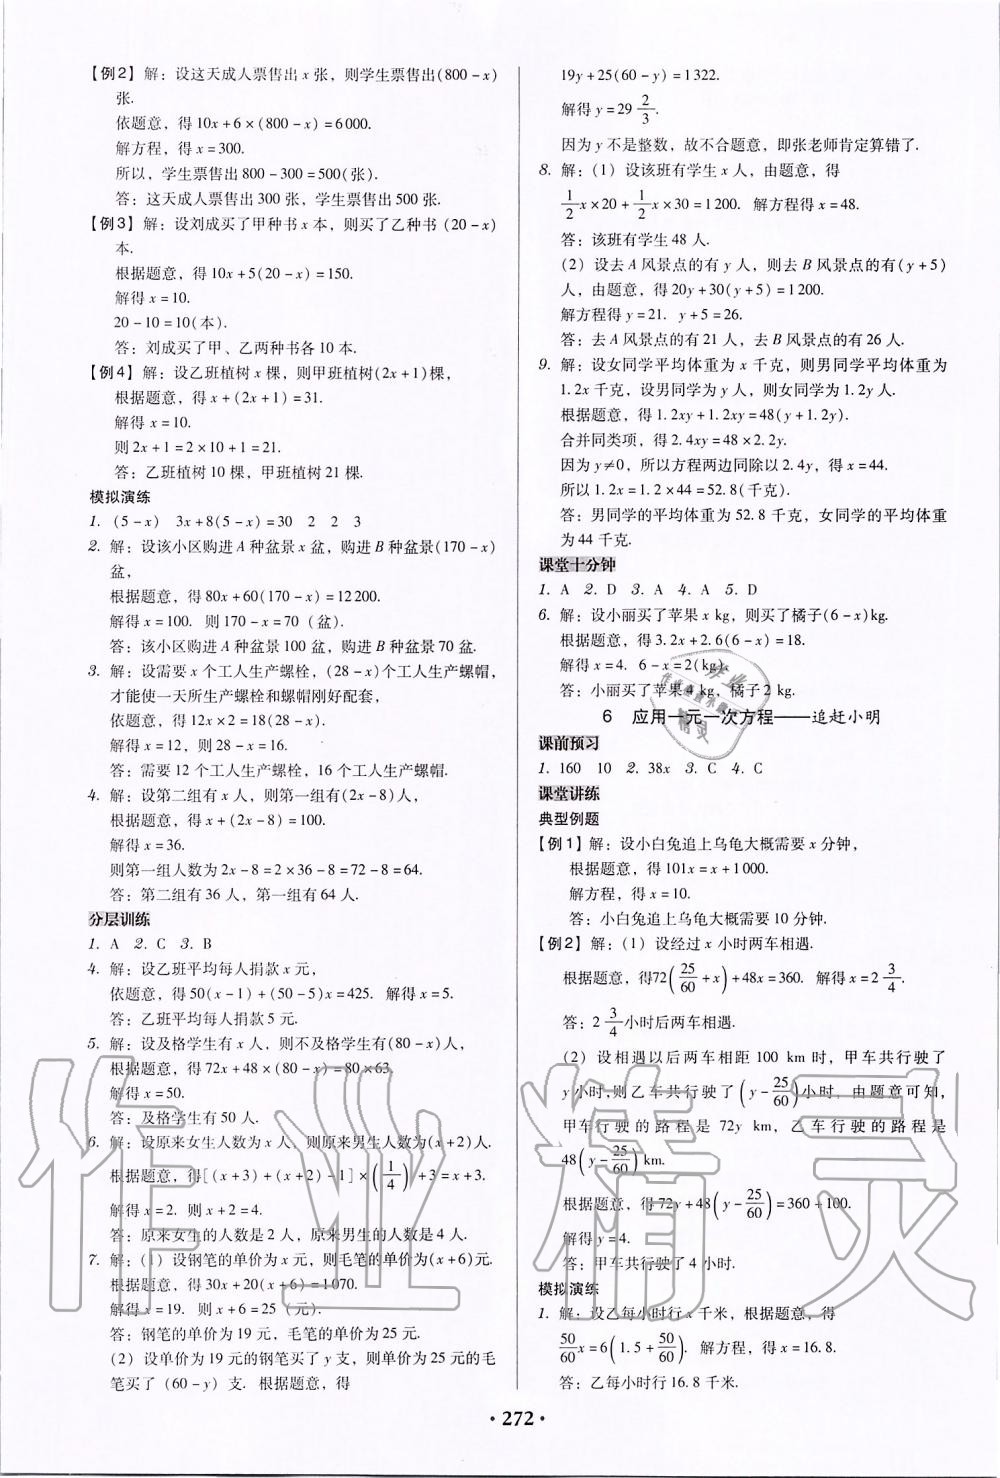 【例2】解：设这天成人票售出x张，则学生票售出(800－x)
张.
依题意，得10x+6×(800－x)=6000.
解方程，得x=300.
所以，学生票售出800－300=500(张).
答：这天成人票售出300张，学生票售出500张.
【例3】解：设刘成买了甲种书x本，则买了乙种书(20－x)
本.
根据题意，得10x+5(20－x)=150.
解得x=10.
20－10=10(本).
答：刘成买了甲、乙两种书各10本.
【例4】解：设乙班植树x棵，则甲班植树(2x+1)棵，
根据题意，得x+(2x+1)=31.
解得x=10.
则2x+1=2×10+1=21.
答：乙班植树10棵，甲班植树21棵.
模拟演练
1. (5－x) 3x+8(5－x)=30 2 2 3
2. 解：设该小区购进A种盆景x盆，购进B种盆景(170－x)
盆，
根据题意，得80x+60(170－x)=12200.
解得x=100. 则170－x=70（盆）.
答：该小区购进A种盆景100盆，购进B种盆景70盆.
3. 解：设需要x个工人生产螺栓，(28－x)个工人生产螺帽，
才能使一天所生产螺栓和螺帽刚好配套，
依题意，得12x×2=18(28－x).
解得x=12，则28－x=16.
答：需要12个工人生产螺栓，16个工人生产螺帽.
4. 解：设第二组有x人，则第一组有(2x－8)人，
根据题意，得x+(2x－8)=100.
解得x=36.
则第一组人数为2x－8=2×36－8=72－8=64.
答：第二组有36人，第一组有64人.
分层训练
1. A 2. C 3. B
4. 解：设乙班平均每人捐款x元，
依题意，得50(x－1)+(50－5)x=425. 解得x=5.
答：乙班平均每人捐款5元.
5. 解：设及格学生有x人，则不及格学生有(80－x)人，
根据题意，得72x+48×(80－x)=80×63.
解得x=50.
答：及格学生有50人.
6. 解：设原来女生人数为x人，则原来男生人数为(x+2)人.
根据题意，得[(x+3)+(x+2)-1]×(1/4)+3=x+3.
解得x=2. 则x+2=4.
答：原来女生的人数是2人，原来男生的人数是4人.
7. 解：(1) 设钢笔的单价为x元，则毛笔的单价为(x+6)元.
根据题意，得30x+20(x+6)=1070.
解得x=19. 则x+6=25（元）.
答：钢笔的单价为19元，毛笔的单价为25元.
(2) 设单价为19元的钢笔买了y支，则单价为25元的毛
笔买了(60－y)支. 根据题意，得
19y+25(60－y)=1322.
解得y=29 2/3.
因为y不是整数，故不合题意，即张老师肯定算错了.
8. 解：(1) 设该班有学生x人，由题意，得
1/2x×20+1/2x×30=1200. 解方程得x=48.
答：该班有学生48人.
(2) 设去A风景点的有y人，则去B风景点的有(y+5)
人，由题意，得20y+30(y+5)=1200.
解方程得y=21. y+5=26.
答：去A风景点的有21人，去B风景点的有26人.
9. 解：设女同学平均体重为x千克，则男同学平均体重为
1.2x千克，设男同学为y人，则女同学为1.2y人.
根据题意，得1.2xy+1.2xy=48(y+1.2y).
合并同类项，得2.4xy=48×2.2y.
因为y≠0，所以方程两边同除以2.4y，得x=44.
所以1.2x=1.2×44=52.8(千克).
答：男同学的平均体重为52.8千克，女同学的平均体重
为44千克.
课堂十分钟
1. A 2. D 3. A 4. A 5. D
6. 解：设小丽买了苹果x kg，则买了橘子(6－x)kg.
根据题意，得3.2x+2.6(6－x)=18.
解得x=4. 6－x=2(kg).
答：小丽买了苹果4 kg，橘子2 kg.
6 应用一元一次方程——追赶小明
课前预习
1. 160 10 2. 38x 3. C 4. C
课堂讲练
典型例题
【例1】解：设小白兔追上乌龟大概需要x分钟，
根据题意，得101x=x+1000.
解方程，得x=10.
答：小白兔追上乌龟大概需要10分钟.
【例2】解：(1) 设经过x小时两车相遇.
根据题意，得72(25/60+x)+48x=360. 解得x=2 3/4.
答：2 3/4小时后两车相遇.
(2) 设相遇以后两车相距100 km时，甲车共行驶了
y小时，则乙车共行驶了(y－25/60)小时. 由题意可知，
甲车行驶的路程是72y km，乙车行驶的路程是
48(y－25/60) km.
根据题意，得72y+48(y－25/60)=360+100.
解得y=4.
答：甲车共行驶了4小时.
模拟演练
1. 解：设乙每小时行x千米，根据题意，得
50/60x=6(1.5+50/60). 解方程，得x=16.8.
答：乙每小时行16.8千米.
·272·
作业精灵